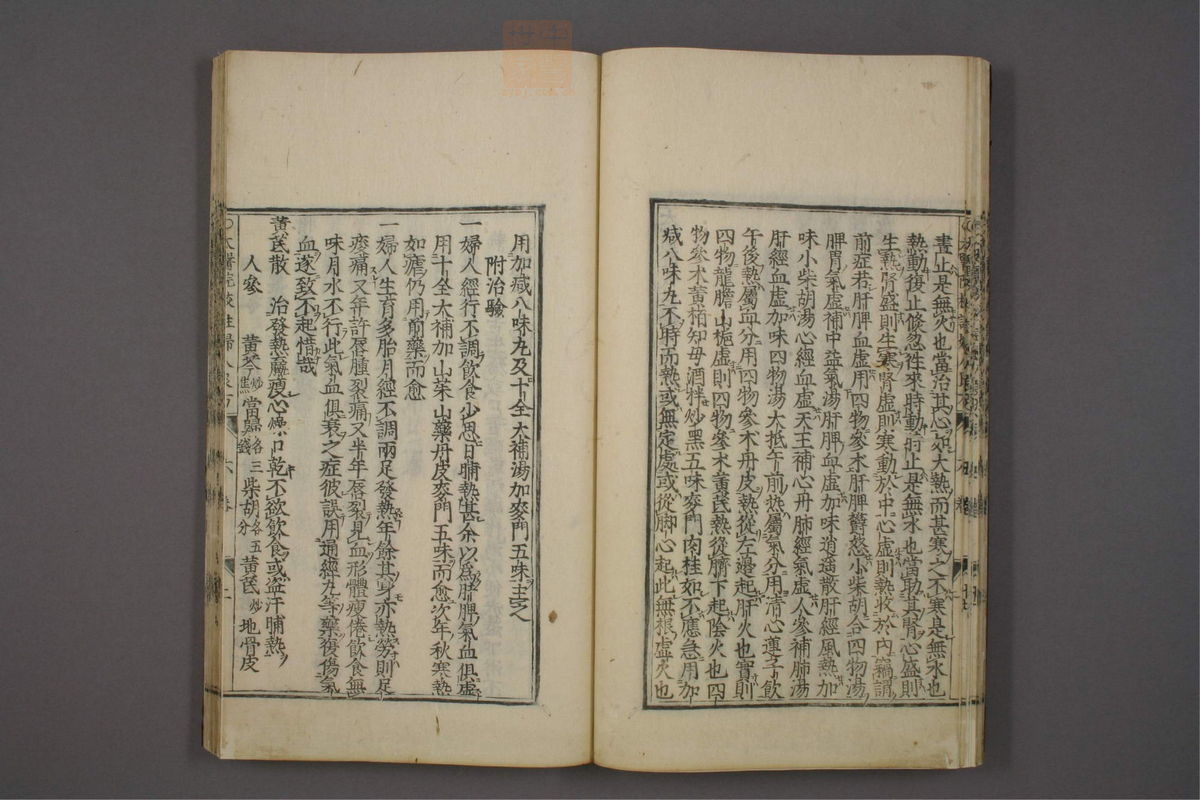 晝止是無火也當治其心如大熱而甚寒之不寒是無水也
熱動復止倏忽往來時動時止是無水也當助其腎心盛則
生熱腎盛則生寒腎虛則寒動於中心虛則熱收於內竊謂
前症若肝脾血虛用四物參朮肝脾鬱怒小柴胡合四物湯
脾胃氣虛補中益氣湯肝脾血虛加味逍遙散肝經風熱加
味小柴胡湯心經血虛天王補心丹肺經氣虛人參補肺湯
肝經血虛加味四物湯大抵午前熱屬氣分用清心蓮子飲
午後熱屬血分用四物參朮丹皮熱從左邊起肝火也實則
四物龍膽山梔虛則四物參朮黃芪熱從臍下起陰火也四
物參朮黃栢知母酒拌炒黑五味麥門肉桂如不應急用加
减八味丸不時而熱或無定處或從脚心起此無根虛火也
用加减八味丸及十全大補湯加麥門五味主之
附治驗
一婦人經行不調飲食少思日晡熱甚余以爲脾氣血俱虛
用十全大補加山茱山藥丹皮麥門五味而愈次年秋寒熱
如瘧仍用前藥而愈
一婦人生育多胎月經不調兩足發熱年餘其身亦熱勞則足
痠痛又年許唇腫裂痛又半年唇裂見血形體瘦倦飲食無
味月水不行此氣血俱衰之症彼誤用通經丸等藥復傷氣
血遂致不起惜哉
黃芪散 治發熱羸瘦心燥口乾不欲飲食或盜汗晡熱
人參 黃芩炒焦 當歸各三錢 柴胡各五分 黃芪炒 地骨皮